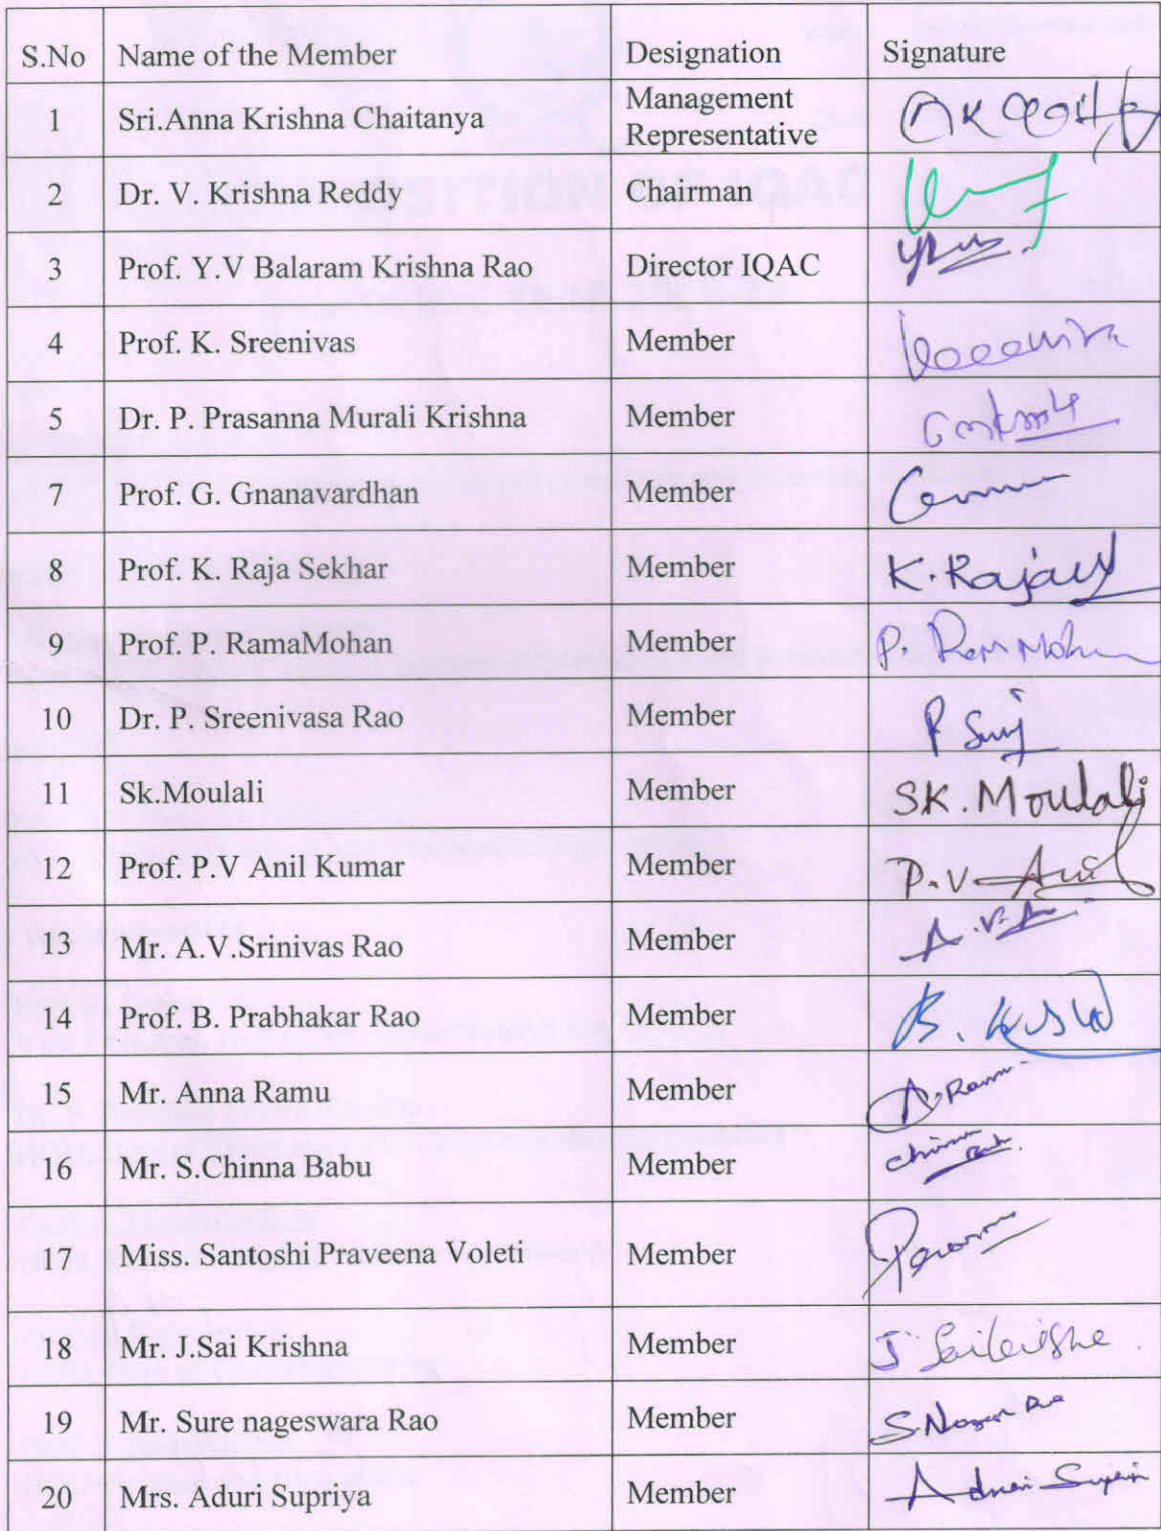 S.No Name of the Member Designation Signature
1 Sri.Anna Krishna Chaitanya Management Representative
2 Dr. V. Krishna Reddy Chairman
3 Prof. Y.V Balaram Krishna Rao Director IQAC
4 Prof. K. Sreenivas Member
5 Dr. P. Prasanna Murali Krishna Member
7 Prof. G. Gnanavardhan Member
8 Prof. K. Raja Sekhar Member
9 Prof. P. RamaMohan Member P. Ram Mohan
10 Dr. P. Sreenivasa Rao Member
11 Sk.Moulali Member SK. Moulali
12 Prof. P.V Anil Kumar Member P.V. Anil
13 Mr. A.V.Srinivas Rao Member
14 Prof. B. Prabhakar Rao Member
15 Mr. Anna Ramu Member A. Ramu
16 Mr. S.Chinna Babu Member
17 Miss. Santoshi Praveena Voleti Member
18 Mr. J.Sai Krishna Member
19 Mr. Sure nageswara Rao Member
20 Mrs. Aduri Supriya Member